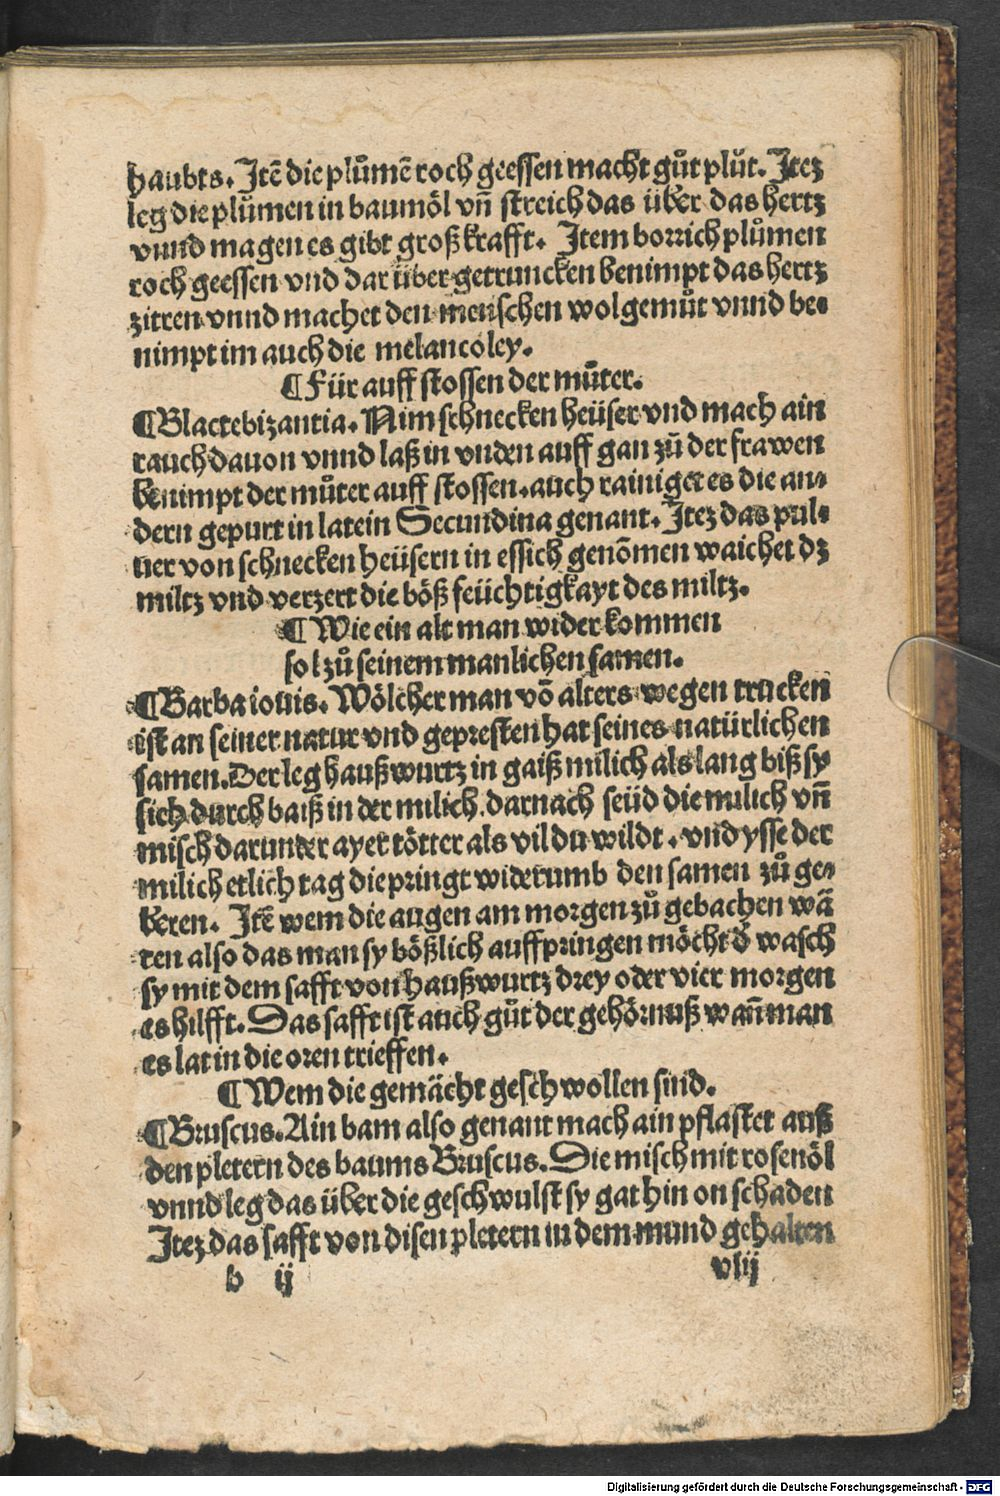 haubts. Itē die plůmē roch geessen macht gůt plůt. Itez
leg die plůmen in baumöl vn̄ streich das über das hertz
vnnd magen es gibt groß krafft. Item borrich plůmen
roch geessen vnd dar über getruncken benimpt das hertz
zitren vnnd machet den menschen wolgemůt vnnd be⸗
nimpt im auch die melancoley.
¶ Für auff stossen der můter.
¶ Blactebizantia. Nim schnecken heüser vnd mach ain
rauch dauon vnnd laß in vnden auff gan zů der frawen
benimpt der můter auff stossen. auch rainiget es die an⸗
dern gepurt in latein Secundina genant. Itez das pul⸗
uer von schnecken heüsern in essich genōmen waichet dz
miltz vnd verzert die böß feüchtigkayt des miltz.
¶ Wie ein alt man wider kommen
sol zů seinem manlichen samen.
¶ Barba iouis. Wölcher man vō alters wegen trucken
ist an seiner natur vnd gepresten hat seines natürlichen
samen. Der leg haußwurtz in gaiß milich als lang biß sy
sich durch baiß in der milich. darnach seüd die milich vn̄
misch darunder ayer tötter als vil du wildt. vnd ysse der
milich etlich tag die pringt widerumb den samen zů ge⸗
beren. Itē wem die augen am morgen zů gebachen wā
ren also das man sy bößlich auffpringen möcht d̓ wasch
sy mit dem safft von haußwurtz drey oder vier morgen
es hilfft. Das safft ist auch gůt der gehörnuß wan̄ man
es lat in die oren trieffen.
¶ Wem die gemächt geschwollen sind.
¶ Bruscus. Ain bam also genant mach ain pflaster auß
den pletern des baums Bruscus. Die misch mit rosenöl
vnnd leg das über die geschwulst sy gat hin on schaden
Itez das safft von disen pletern in dem mund gehalten
b ij
vlij
Digitalisierung gefördert durch die Deutsche Forschungsgemeinschaft - DFG